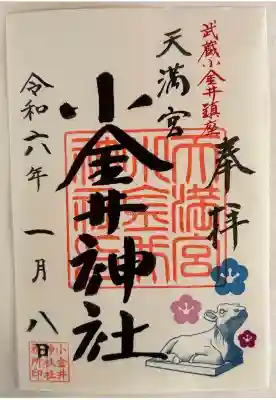 武蔵小金井鎮座
奉拝
天満宮
小金井神社
令和六年一月八日
小金井
神社社
務所印